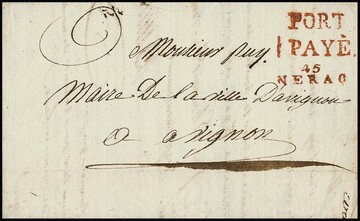 PORT
PAYÈ.
45
NERAC
Monsieur puy.
Maire De la ville Davignon
a avignon